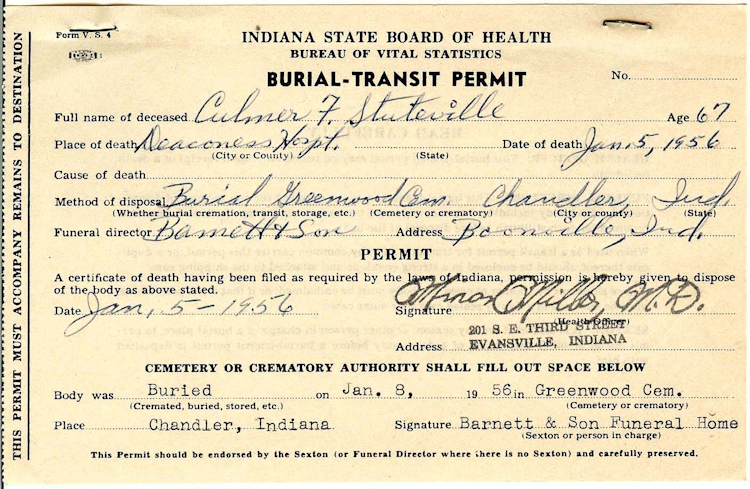 Form V. S. 4
INDIANA STATE BOARD OF HEALTH
BUREAU OF VITAL STATISTICS
BURIAL-TRANSIT PERMIT
No.
Full name of deceased Culmer F. Stuteville Age 67
Place of death Deaconess Hospt. Date of death Jan. 5, 1956
(City or County) (State)
Cause of death
Method of disposal Burial Greenwood Cem. Chandler, Ind.
(Whether burial cremation, transit, storage, etc.) (Cemetery or crematory) (City or county) (State)
Funeral director Barnett & Son Address Boonville, Ind.
PERMIT
A certificate of death having been filed as required by the laws of Indiana, permission is hereby given to dispose
of the body as above stated.
Date Jan, 5-1956 Signature Minor Miller, M.D.
Health Officer
201 S. E. THIRD STREET
Address EVANSVILLE, INDIANA
CEMETERY OR CREMATORY AUTHORITY SHALL FILL OUT SPACE BELOW
Body was Buried on Jan. 8, 19 56 in Greenwood Cem.
(Cremated, buried, stored, etc.) (Cemetery or crematory)
Place Chandler, Indiana Signature Barnett & Son Funeral Home
(Sexton or person in charge)
This Permit should be endorsed by the Sexton (or Funeral Director where there is no Sexton) and carefully preserved.
THIS PERMIT MUST ACCOMPANY REMAINS TO DESTINATION